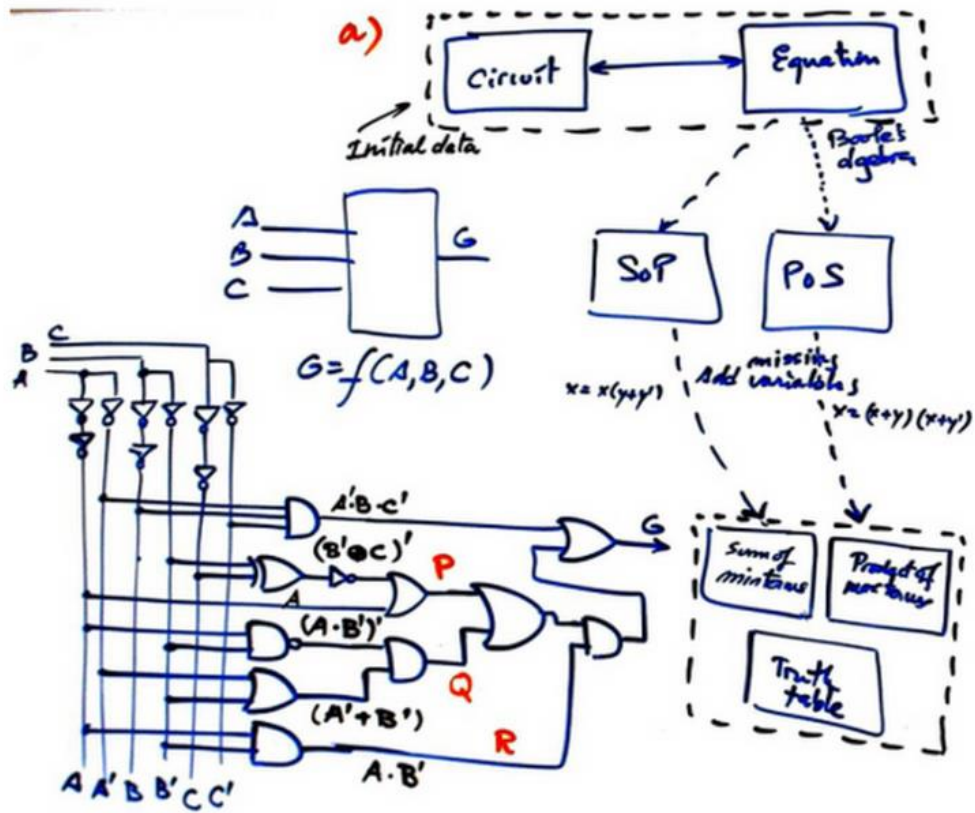 a)
Circuit
Equation
Initial data
Boole's
algebra
A
B
C
G
SoP
PoS
G=f(A,B,C)
missing
Add variables
x=x(y+y')
x=(x+y)(x+y')
C
B
A
A'·B·C'
(B'⊕C)'
P
A
(A·B')'
Q
(A'+B')
R
A·B'
G
Sum of
minterms
Product of
maxterms
Truth
table
A A' B B' C C'